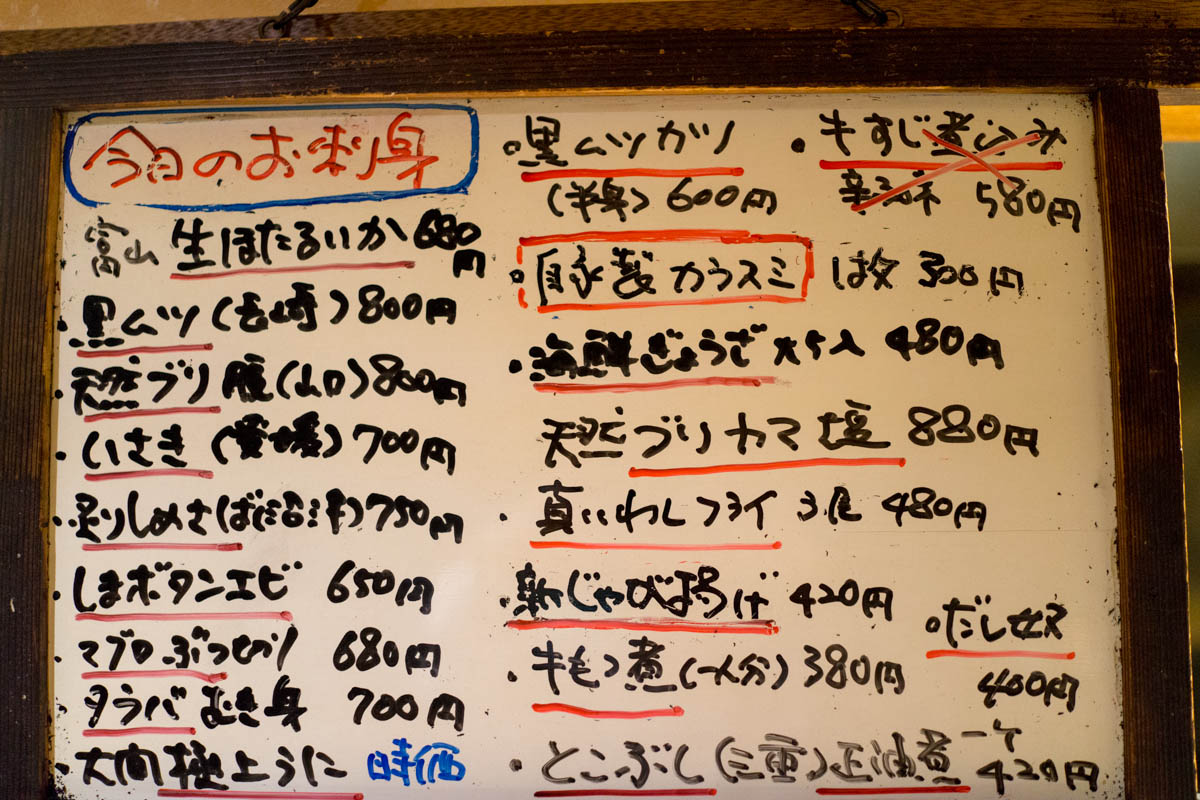 今日のお刺身
富山 生ほたるいか 680円
・黒ムツ(長崎)800円
・天然ブリ腹(山口)800円
・いさき(愛媛)700円
・炙りしめさば(沼津)750円
・しまボタンエビ 650円
・マグロぶつ切り 680円
・タラバむき身 700円
・大間極上うに 時価
・黒ムツガリ
(半身) 600円
・自家製カラスミ は枚 300円
・海鮮ぎょうざ 大5入 480円
天然ブリカマ塩 880円
・真いわしフライ 3尾 480円
・新じゃが揚げ 420円
・牛もつ煮(一人分)380円
・とこぶし(三重)正油煮 一ケ 420円
・牛すじ煮込み
580円
・だし奴
400円